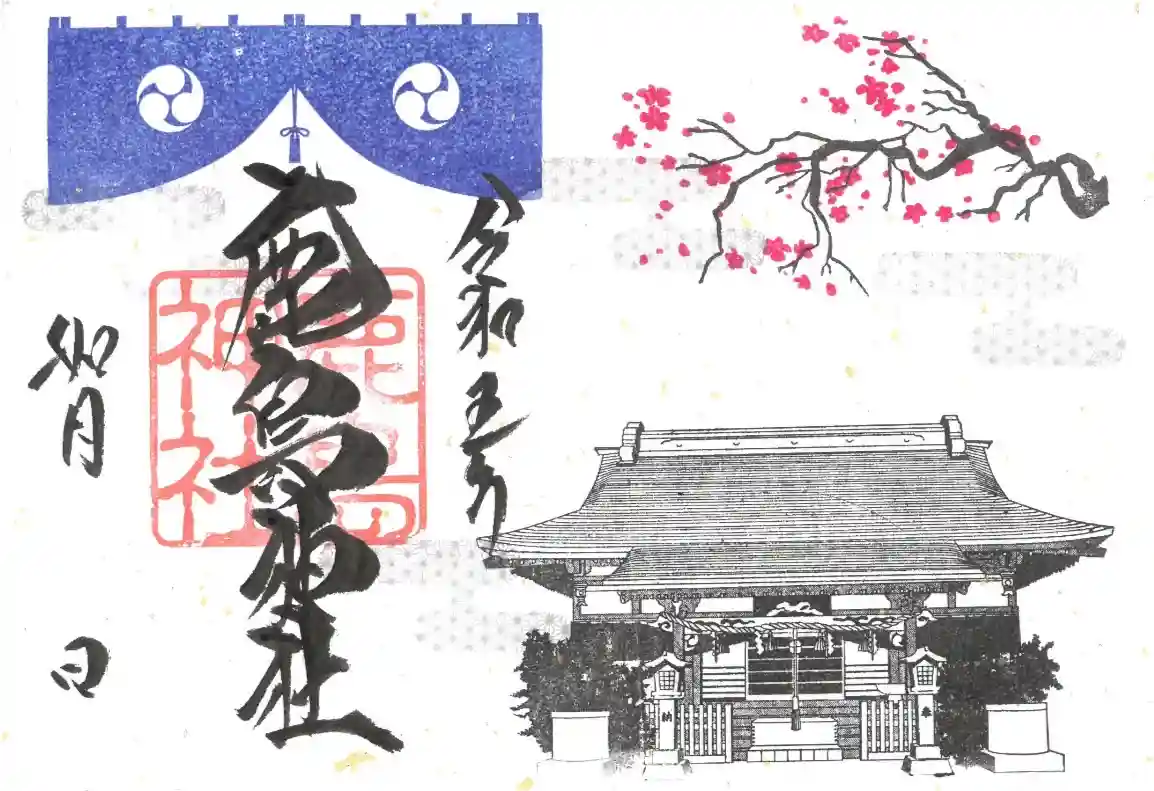 令和五年
鹿島神社
鹿島
神社
如月 日
奉
納